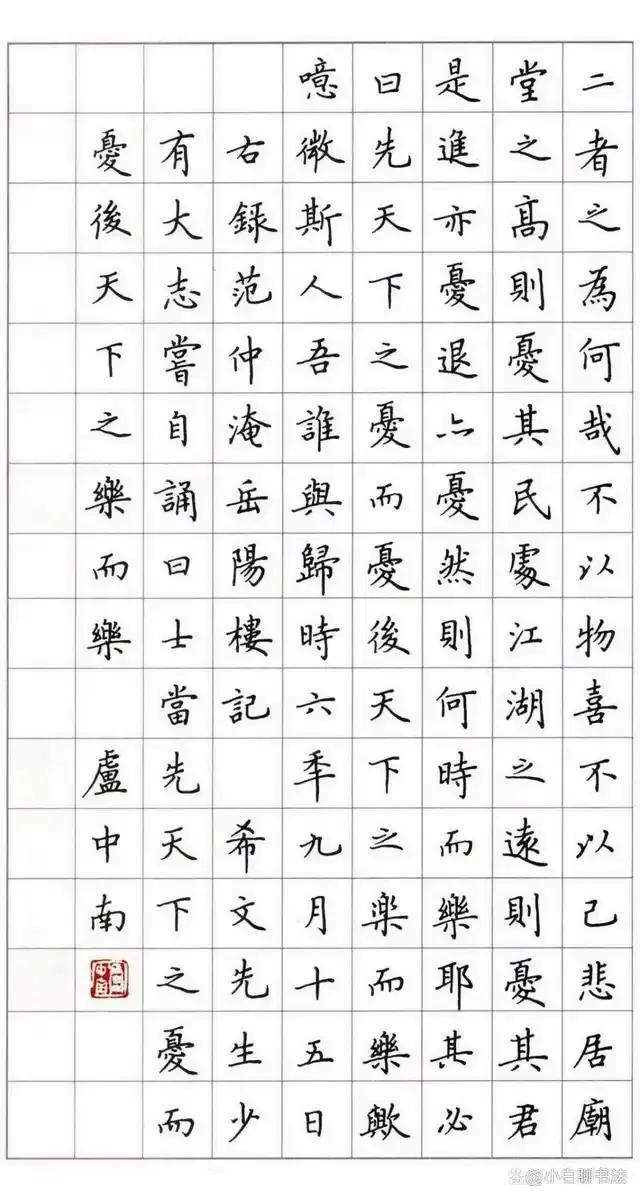 二者之為何哉不以物喜不以己悲居廟
堂之髙則憂其民處江湖之遠則憂其君
是進亦憂退亦憂然則何時而樂耶其必
曰先天下之憂而憂後天下之楽而樂歟
噫微斯人吾誰與歸時六秊九月十五日
右錄范仲淹岳陽樓記 希文先生少
有大志嘗自誦曰士當先天下之憂而
憂後天下之樂而樂 盧中南
@小白聊书法